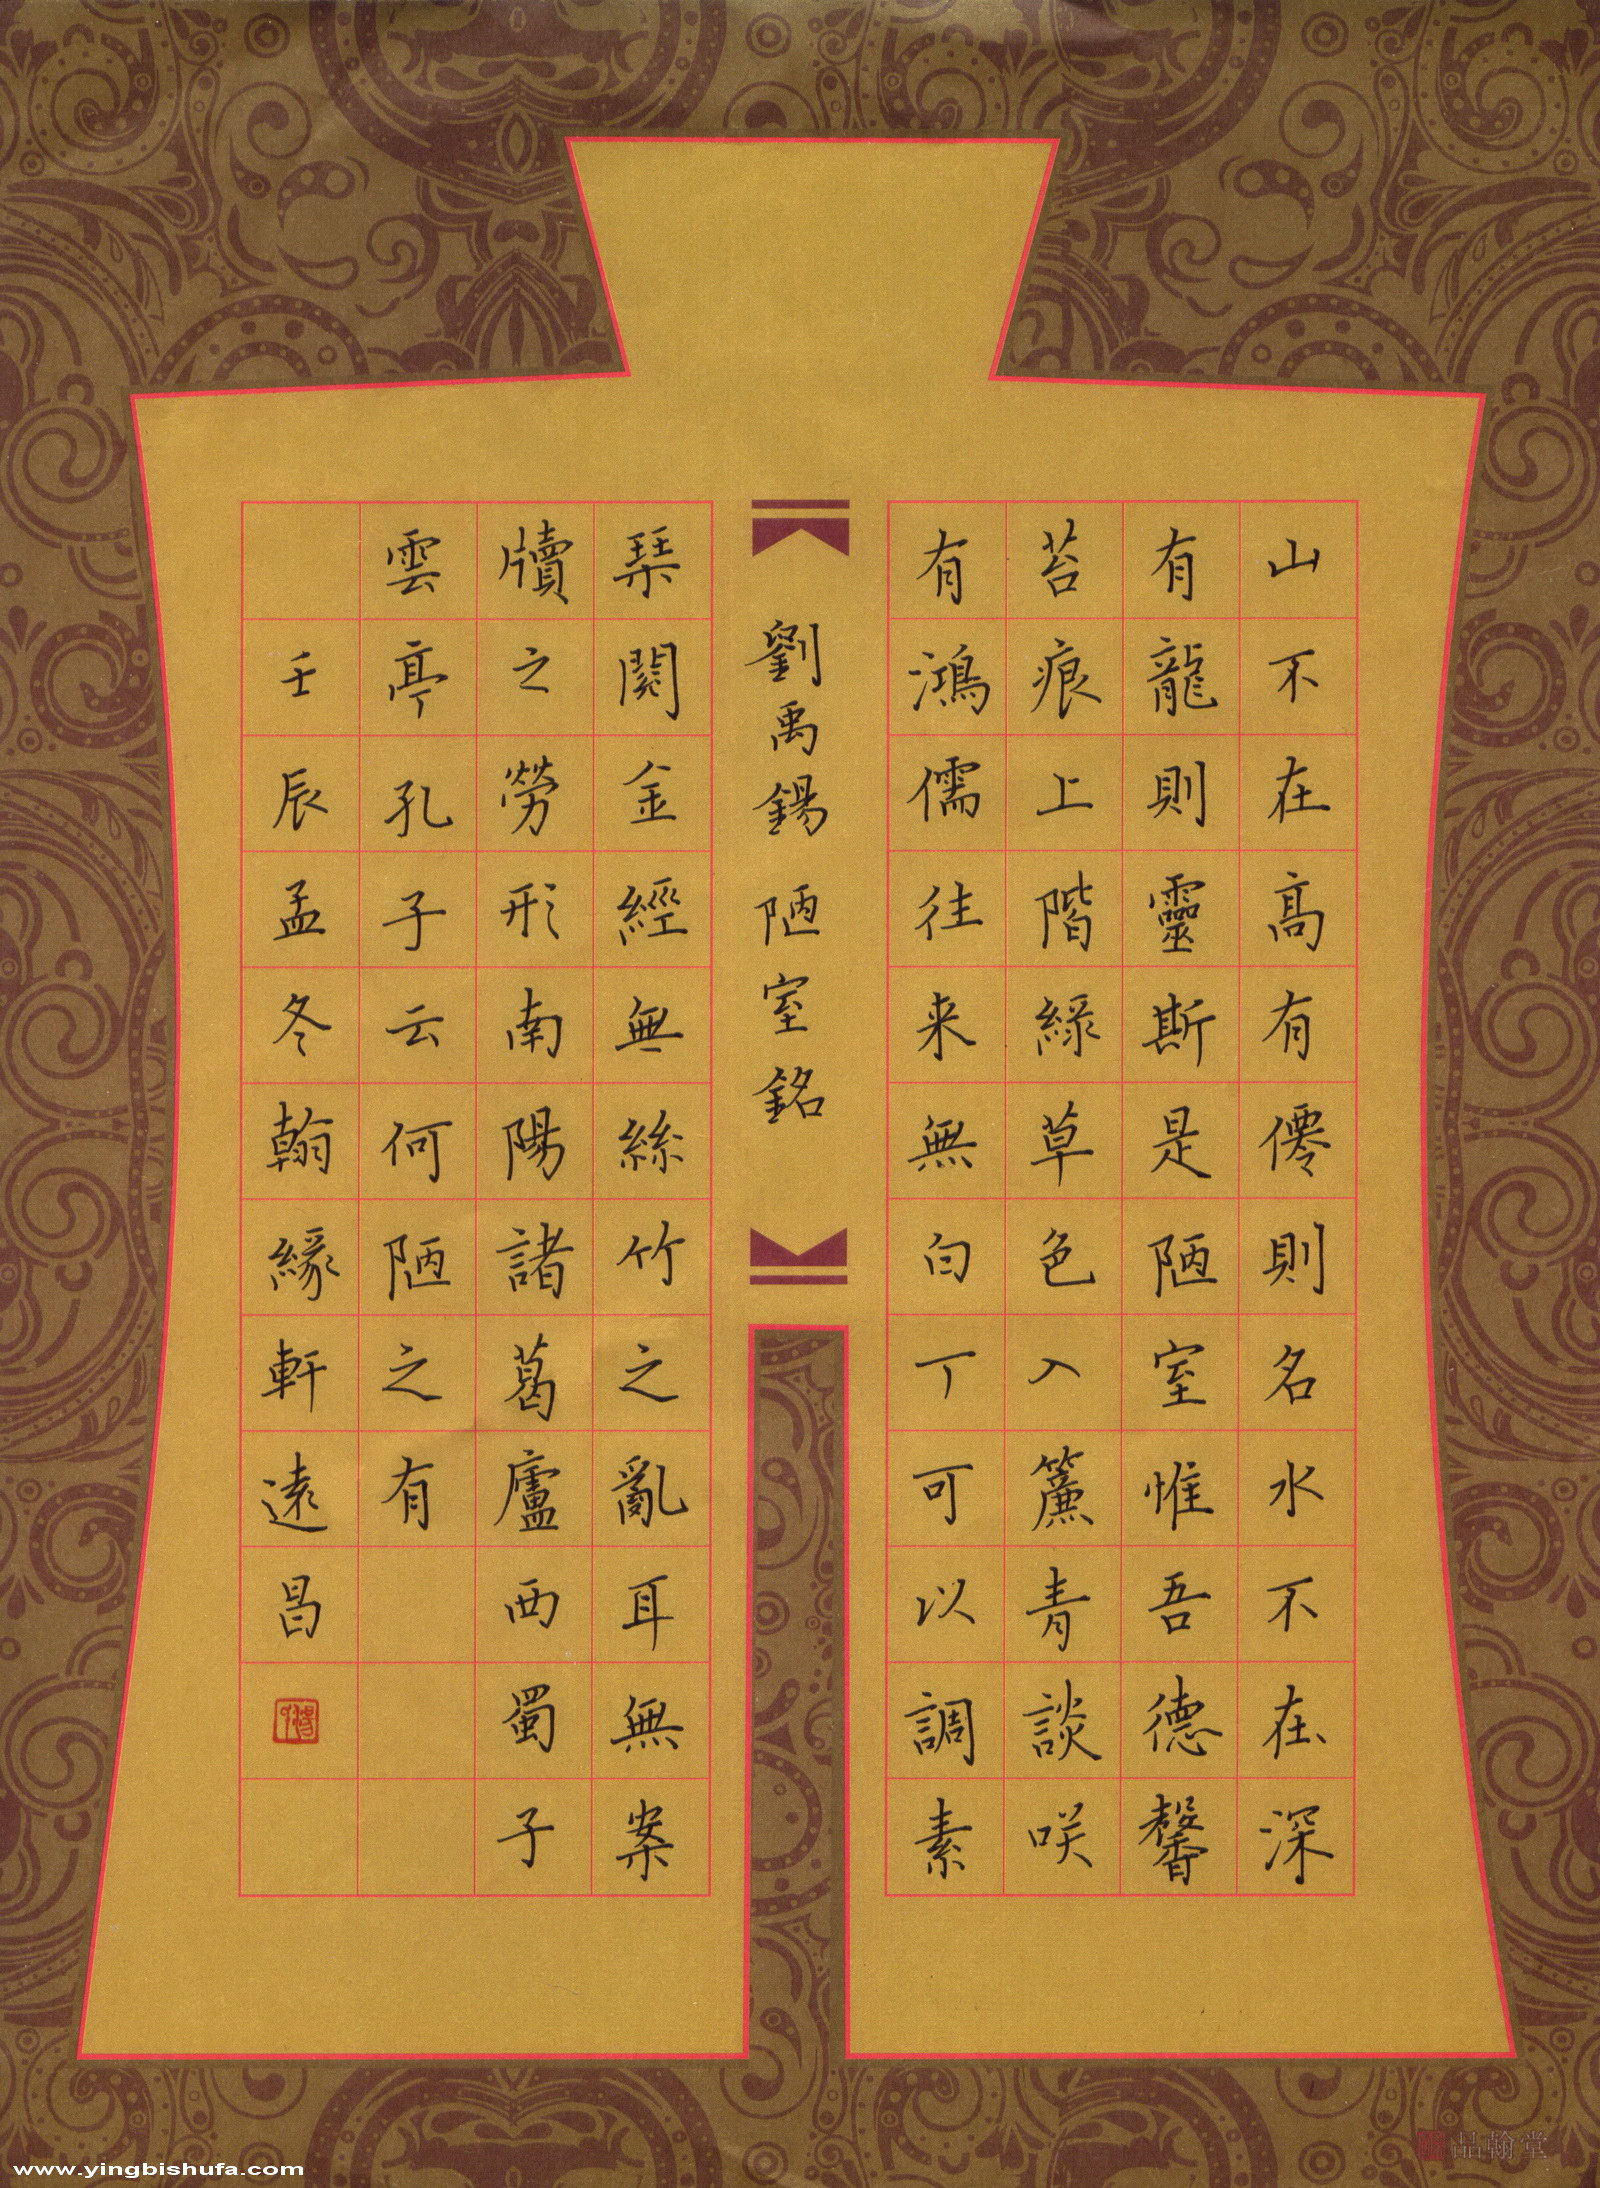 山不在高有僊則名水不在深
有龍則靈斯是陋室惟吾德馨
苔痕上階綠草色入簾青談咲
有鴻儒往来無白丁可以調素
劉禹錫陋室銘
琹閱金經無絲竹之亂耳無案
牘之勞形南陽諸葛廬西蜀子
雲亭孔子云何陋之有
壬辰孟冬翰緣軒遠昌
www.yingbishufa.com
品翰堂